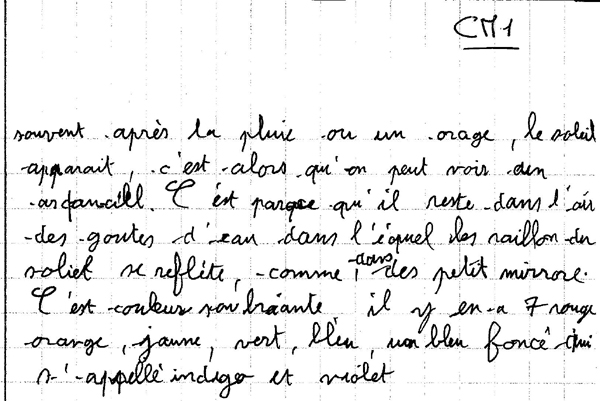 CM1
souvent après la pluie ou un orage, le soleil
apparait, c'est alors qu'on peut voir un
C'est parque qu'il reste dans l'air
des goutes d'eau dans l'équel les raillon du
soliel se reflète, comme, dans des petit mirrore.
C'est couleur sou braante il y en a 7 rouge
orange, jaune, vert, bleu, un bleu foncé qui
s'appellé indigo et violet